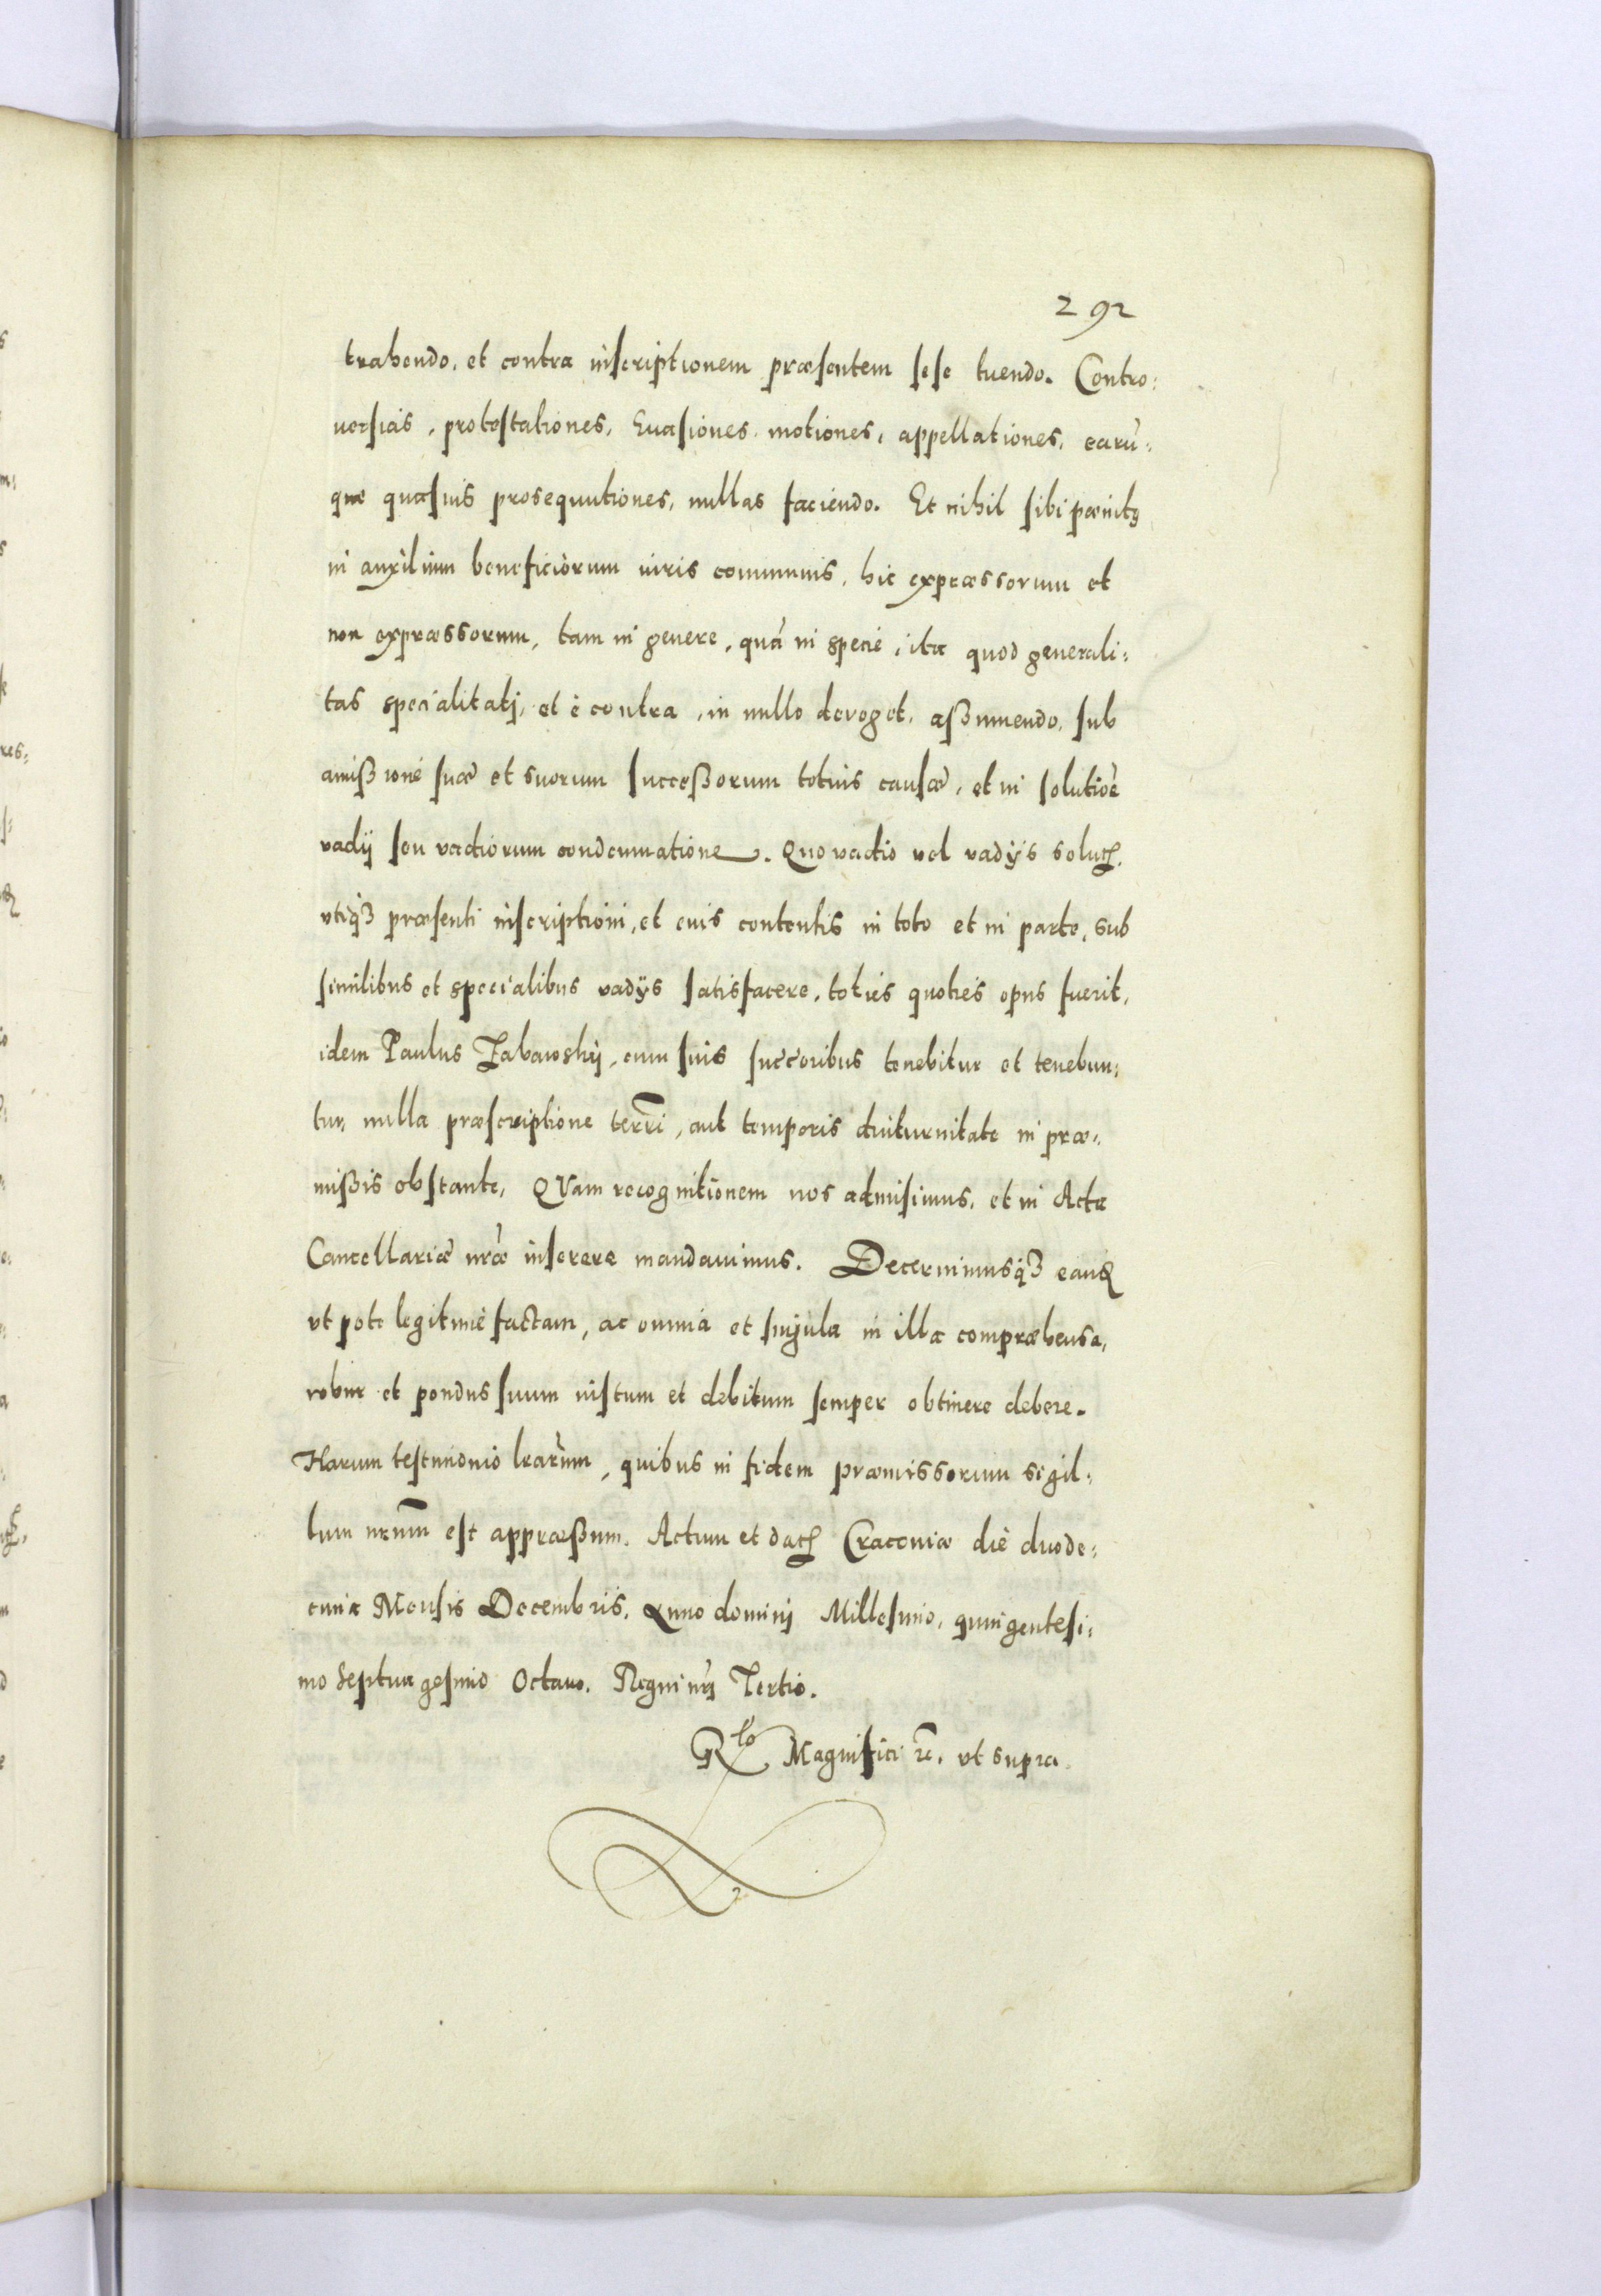 292
trahendo, et contra inscriptionem præsentem sese tuendo. Contro:
uersias, protestationes, Euasiones, motiones, appellationes, earũ:
que quasuis prosequutiones, nullas faciendo. Et nihil sibi pænitꝫ
in auxilium beneficiorum iuris communis, hic expræssorum et
non expræssorum, tam in genere, quã in specie, ita quod generali:
tas specialitatj, et è contra, in nullo deroget, aßumendo, sub
amißione suæ et suorum succeßorum totius causæ, et in solutiõe
vadij seu vadiorum condemnatione. Quo vadio vel vadijs solut,
vtiqꝫ præsenti inscriptioni, et euis contentis in toto et in parte, sub
similibus et specialibus vadijs satisfacere, toties quoties opus fuerit,
idem Paulus Zabawskij, cum suis succ̃oribus tenebitur et tenebun:
tur, nulla præscriptione terr̃i, aut temporis diuturnitate in præ:
mißis obstante, QVam recognitionem nos admisimus, et in Acta
Cancellariæ nr̃æ inserere mandauimus. Decernimusqꝫ eand
vt pote legitimè factam, ac omnia et singula in illa compræhensa,
robur et pondus suum iustum et debitum semper obtinere debere.
Harum testimonio lr̃arum, quibus in fidem præmissorum sigil:
lum nr̃um est appræßum. Actum et dat Cracouiæ die duode:
cima Mensis Decembris, Anno dominj Millesimo, quingentesi:
mo Septuagesimo Octauo. Regni nr̃j Tertio.
Rlo Magnifici etc. vt supra.